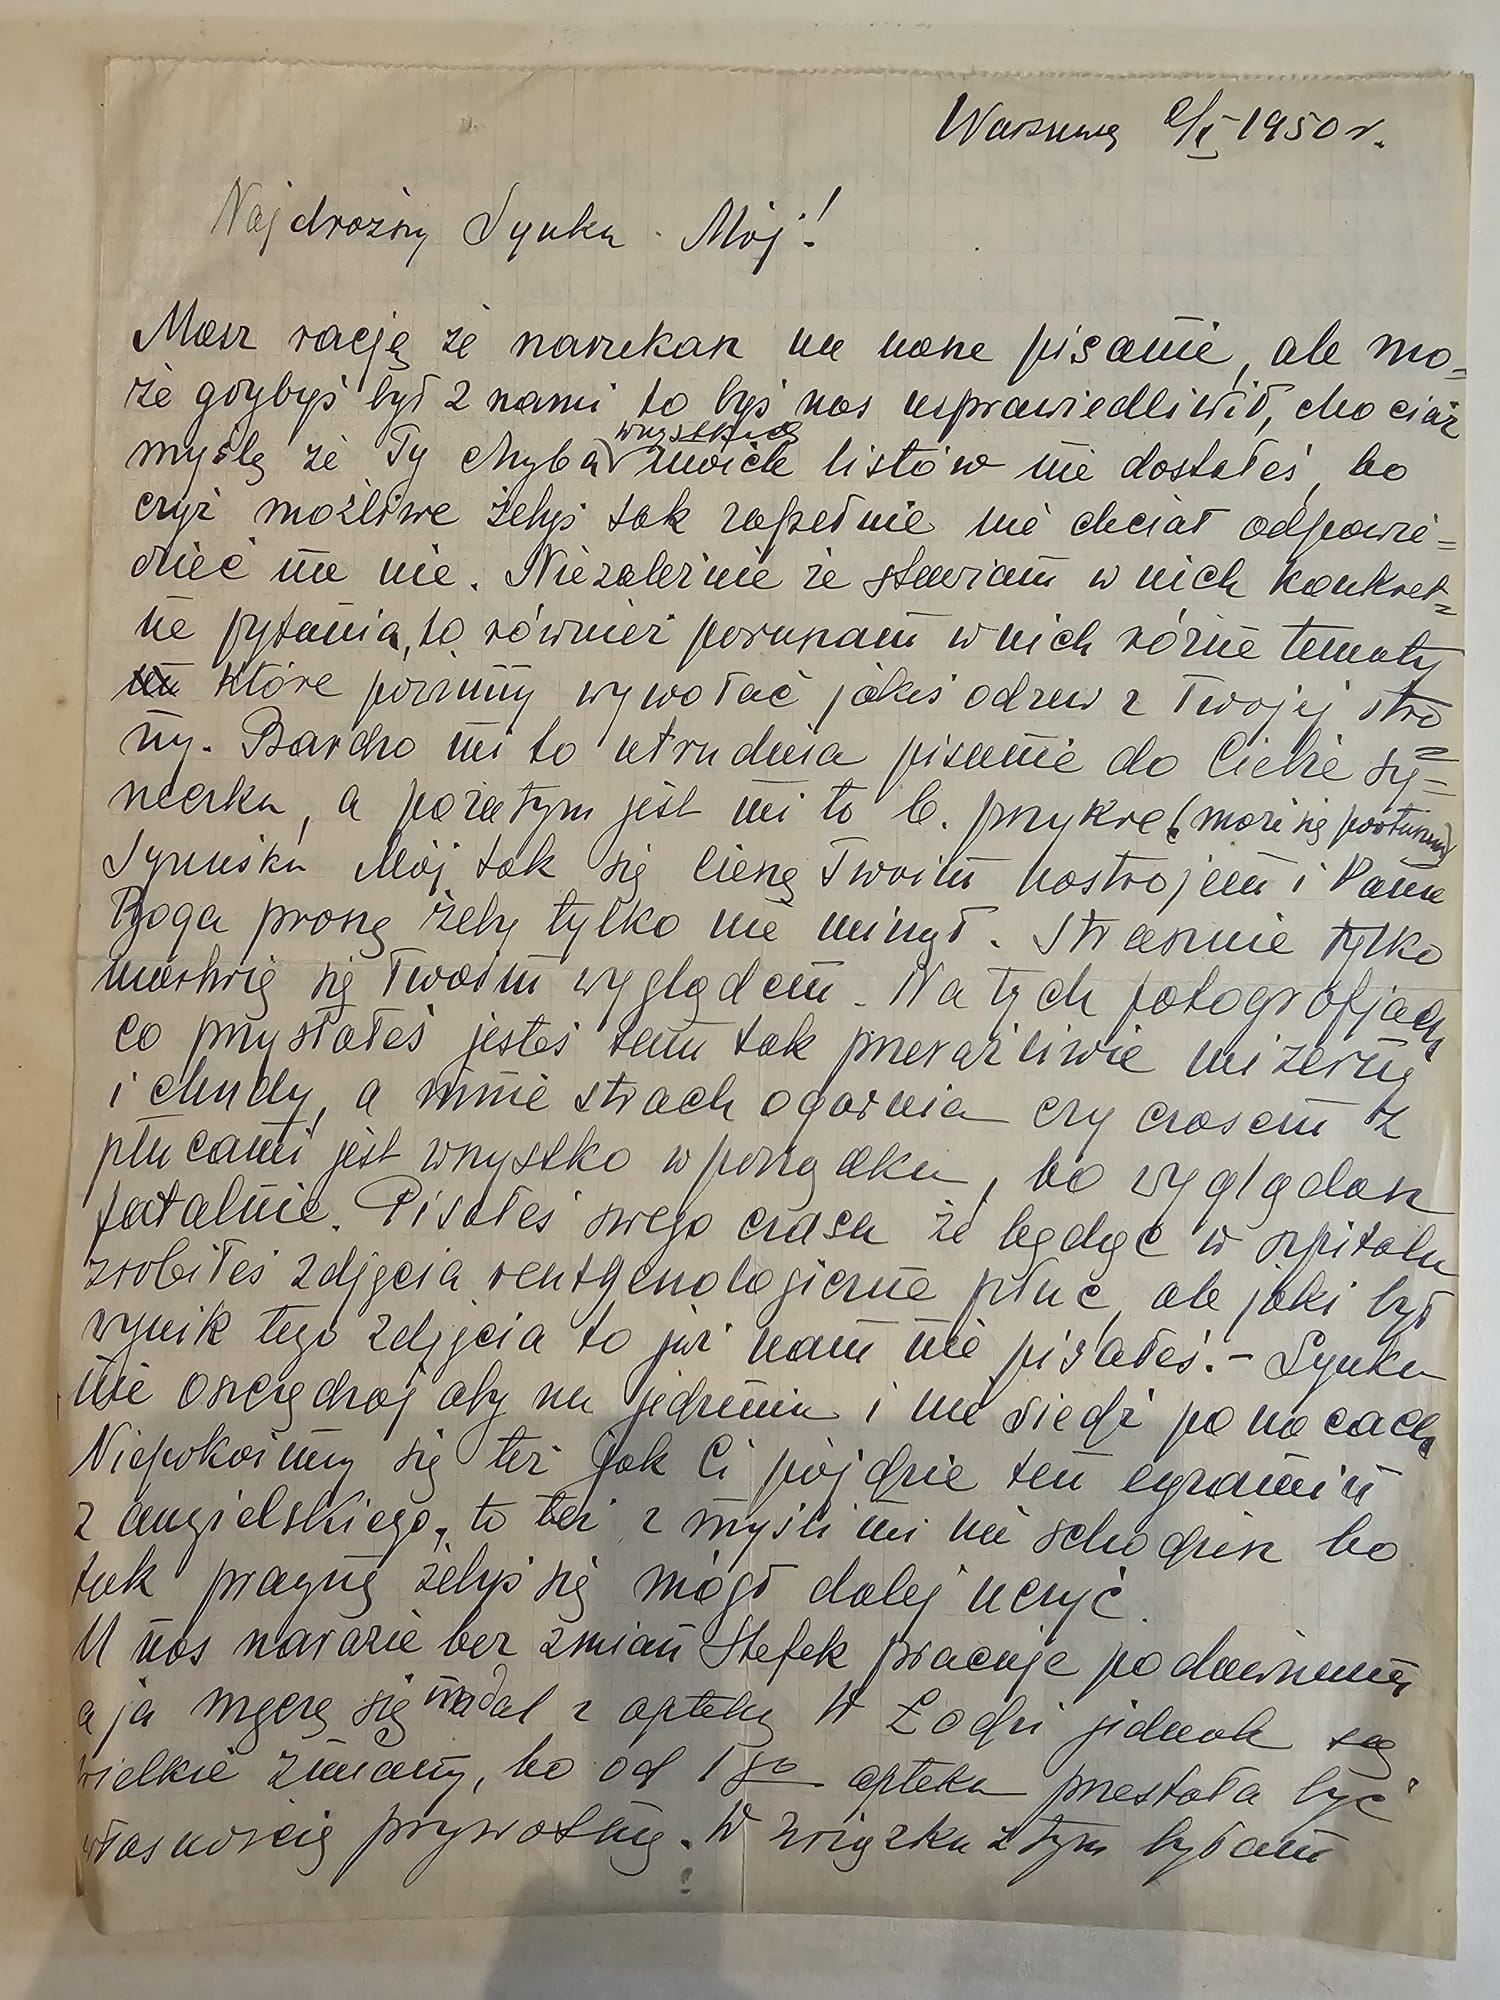 Warszawa 2/II 1950 r.
Najdroższy Synku Mój!
Masz rację że narzekasz na nasze pisanie, ale mo=
że gdybyś był z nami to byś nas usprawiedliwił, chociaż
wszystkich
myślę że Ty chyba moich listów nie dostałeś, bo
czyż możliwe żebyś tak zupełnie nie chciał odpowie=
dzieć na nie. Niezależnie że stawiam w nich konkret=
ne pytania, to również poruszam w nich różne tematy
które powinny wywołać jakiś odzew z Twojej stro=
ny. Bardzo mi to utrudnia pisanie do Ciebie sy=
neczku, a pozatym jest mi to b. przykre (może się poprawisz)
Synuśku Mój tak się cieszę Twoim nastrojem i Pana
Boga proszę żeby tylko nie minął. Strasznie tylko
martwię się Twoim wyglądem. Na tych fotografjach
co przysłałeś jesteś tam tak przeraźliwie mizerny
i chudy, a mnie strach ogarnia czy czasem z
płucami jest wszystko w porządku, bo wyglądasz
fatalnie. Pisałeś swego czasu że będąc w szpitalu
zrobiłeś zdjęcia rentgenologiczne płuc, ale jaki był
wynik tego zdjęcia to już nam nie pisałeś. - Synku
nie oszczędzaj aby na jedzeniu i nie siedź po nocach
Niepokoimy się też jak Ci pójdzie ten egzamin
z angielskiego, to też z myśli mi nie schodzisz bo
tak pragnę żebyś się mógł dalej uczyć.
U nas narazie bez zmian Stefek pracuje po dawnemu
a ja męczę się nadal z apteką W Łodzi jednak są
wielkie zmiany, bo od 1go apteka przestała być
własnością prywatną. W związku z tym byłam